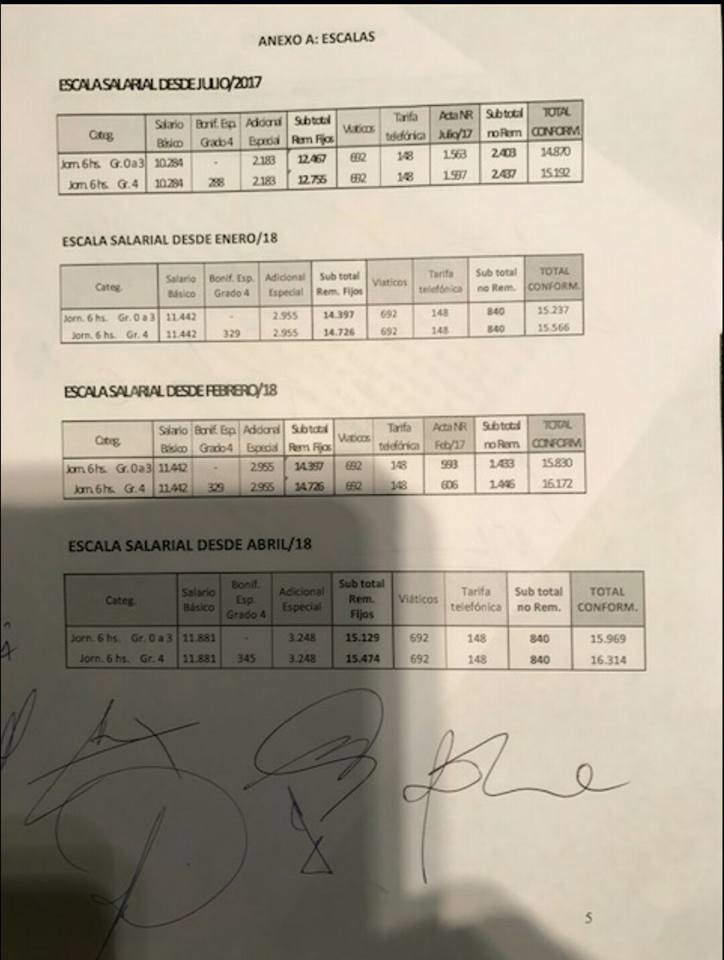 ANEXO A: ESCALAS
ESCALA SALARIAL DESDE JULIO/2017
Categ. Salario Básico Bonif. Esp. Grado 4 Adicional Especial Sub total Rem. Fijos Viaticos Tarifa telefónica Acta NR Julio/17 Sub total no Rem. TOTAL CONFORM.
Jorn. 6 hs. Gr. 0 a 3 10.284 - 2.183 12.467 692 148 1.563 2.403 14.870
Jorn. 6 hs. Gr. 4 10.284 288 2.183 12.755 692 148 1.597 2.437 15.192
ESCALA SALARIAL DESDE ENERO/18
Categ. Salario Básico Bonif. Esp. Grado 4 Adicional Especial Sub total Rem. Fijos Viaticos Tarifa telefónica Sub total no Rem. TOTAL CONFORM.
Jorn. 6 hs. Gr. 0 a 3 11.442 - 2.955 14.397 692 148 840 15.237
Jorn. 6 hs. Gr. 4 11.442 329 2.955 14.726 692 148 840 15.566
ESCALA SALARIAL DESDE FEBRERO/18
Categ. Salario Básico Bonif. Esp. Grado 4 Adicional Especial Sub total Rem. Fijos Viaticos Tarifa telefónica Acta NR Feb/17 Sub total no Rem. TOTAL CONFORM.
Jorn. 6 hs. Gr. 0 a 3 11.442 - 2.955 14.397 692 148 593 1.433 15.830
Jorn. 6 hs. Gr. 4 11.442 329 2.955 14.726 692 148 606 1.446 16.172
ESCALA SALARIAL DESDE ABRIL/18
Categ. Salario Básico Bonif. Esp. Grado 4 Adicional Especial Sub total Rem. Fijos Viáticos Tarifa telefónica Sub total no Rem. TOTAL CONFORM.
Jorn. 6 hs. Gr. 0 a 3 11.881 - 3.248 15.129 692 148 840 15.969
Jorn. 6 hs. Gr. 4 11.881 345 3.248 15.474 692 148 840 16.314
5